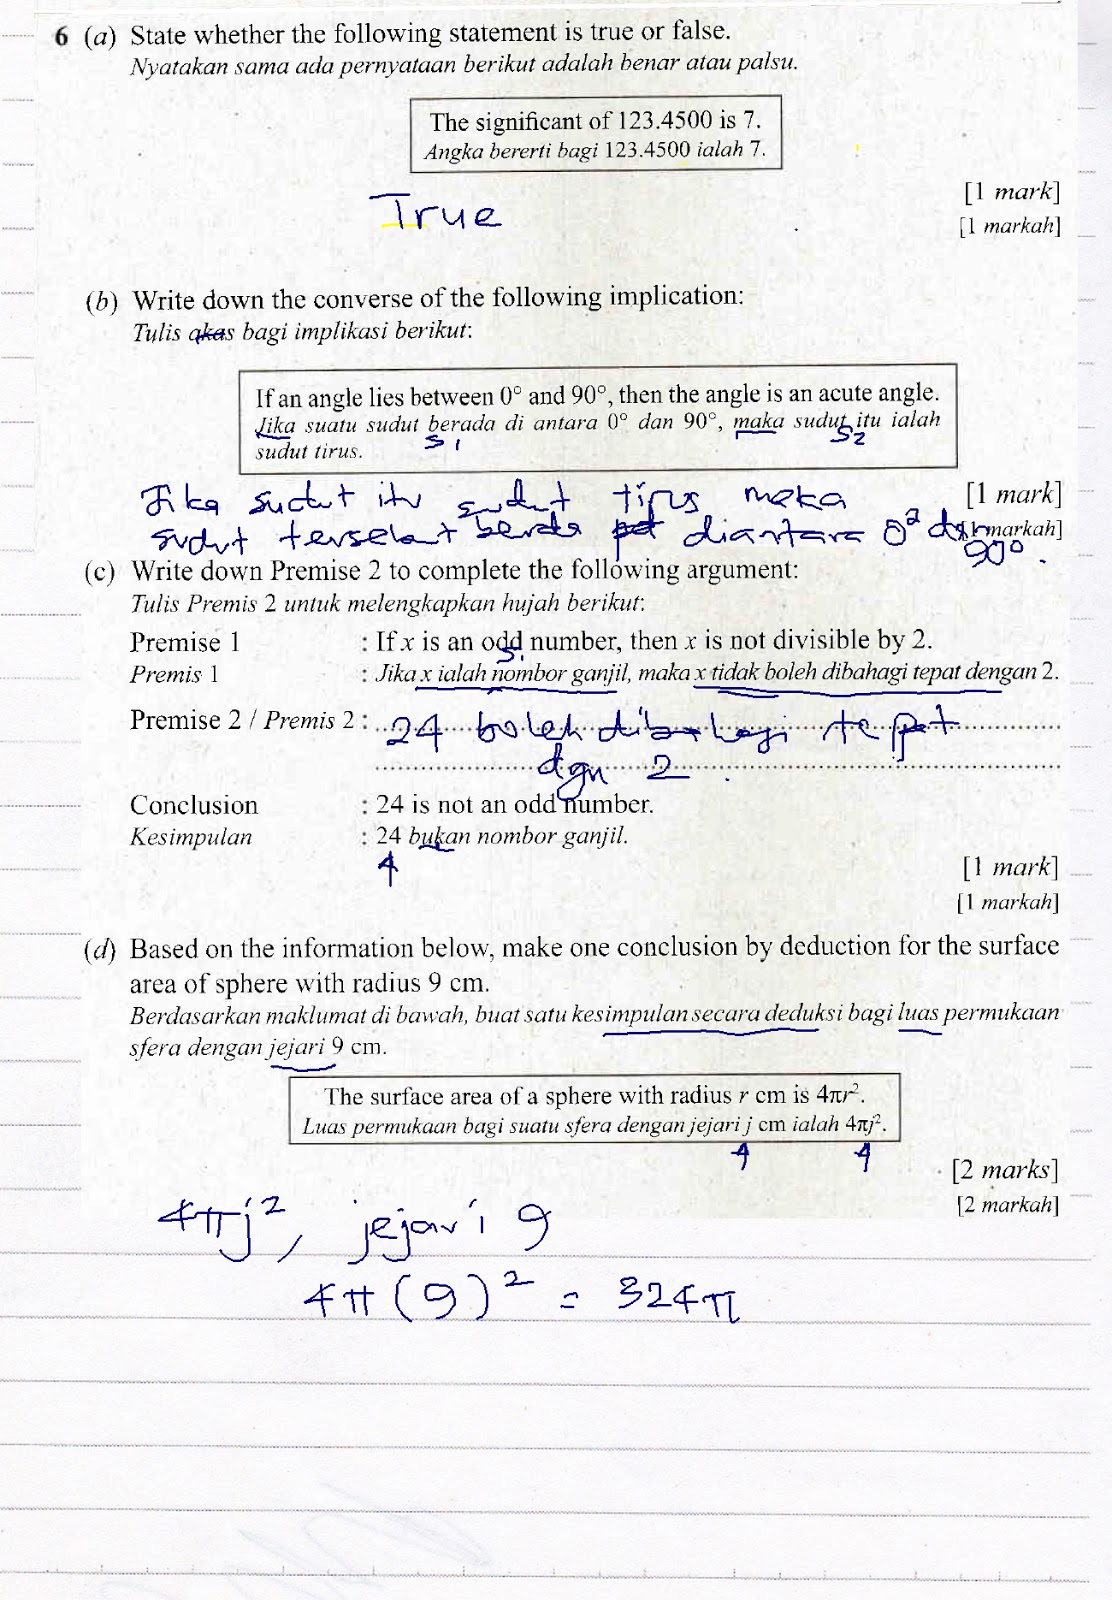 6 (a) State whether the following statement is true or false.
Nyatakan sama ada pernyataan berikut adalah benar atau palsu.
The significant of 123.4500 is 7.
Angka bererti bagi 123.4500 ialah 7.
[1 mark]
True
[1 markah]
(b) Write down the converse of the following implication:
Tulis akas bagi implikasi berikut:
If an angle lies between 0° and 90°, then the angle is an acute angle.
Jika suatu sudut berada di antara 0° dan 90°, maka sudut itu ialah
S1 S2
sudut tirus.
Jika sudut itu sudut tirus maka
[1 mark]
sudut tersebut berada diantara 0° dan
markah]
90°.
(c) Write down Premise 2 to complete the following argument:
Tulis Premis 2 untuk melengkapkan hujah berikut:
Premise 1 : If x is an odd number, then x is not divisible by 2.
S1
Premis 1 : Jika x ialah nombor ganjil, maka x tidak boleh dibahagi tepat dengan 2.
Premise 2 / Premis 2 : 24 boleh dibahagi tepat
dgn 2.
Conclusion : 24 is not an odd number.
Kesimpulan : 24 bukan nombor ganjil.
[1 mark]
[1 markah]
(d) Based on the information below, make one conclusion by deduction for the surface
area of sphere with radius 9 cm.
Berdasarkan maklumat di bawah, buat satu kesimpulan secara deduksi bagi luas permukaan
sfera dengan jejari 9 cm.
The surface area of a sphere with radius r cm is 4πr².
Luas permukaan bagi suatu sfera dengan jejari j cm ialah 4πj².
[2 marks]
[2 markah]
4πj², jejari 9
4π(9)² = 324π